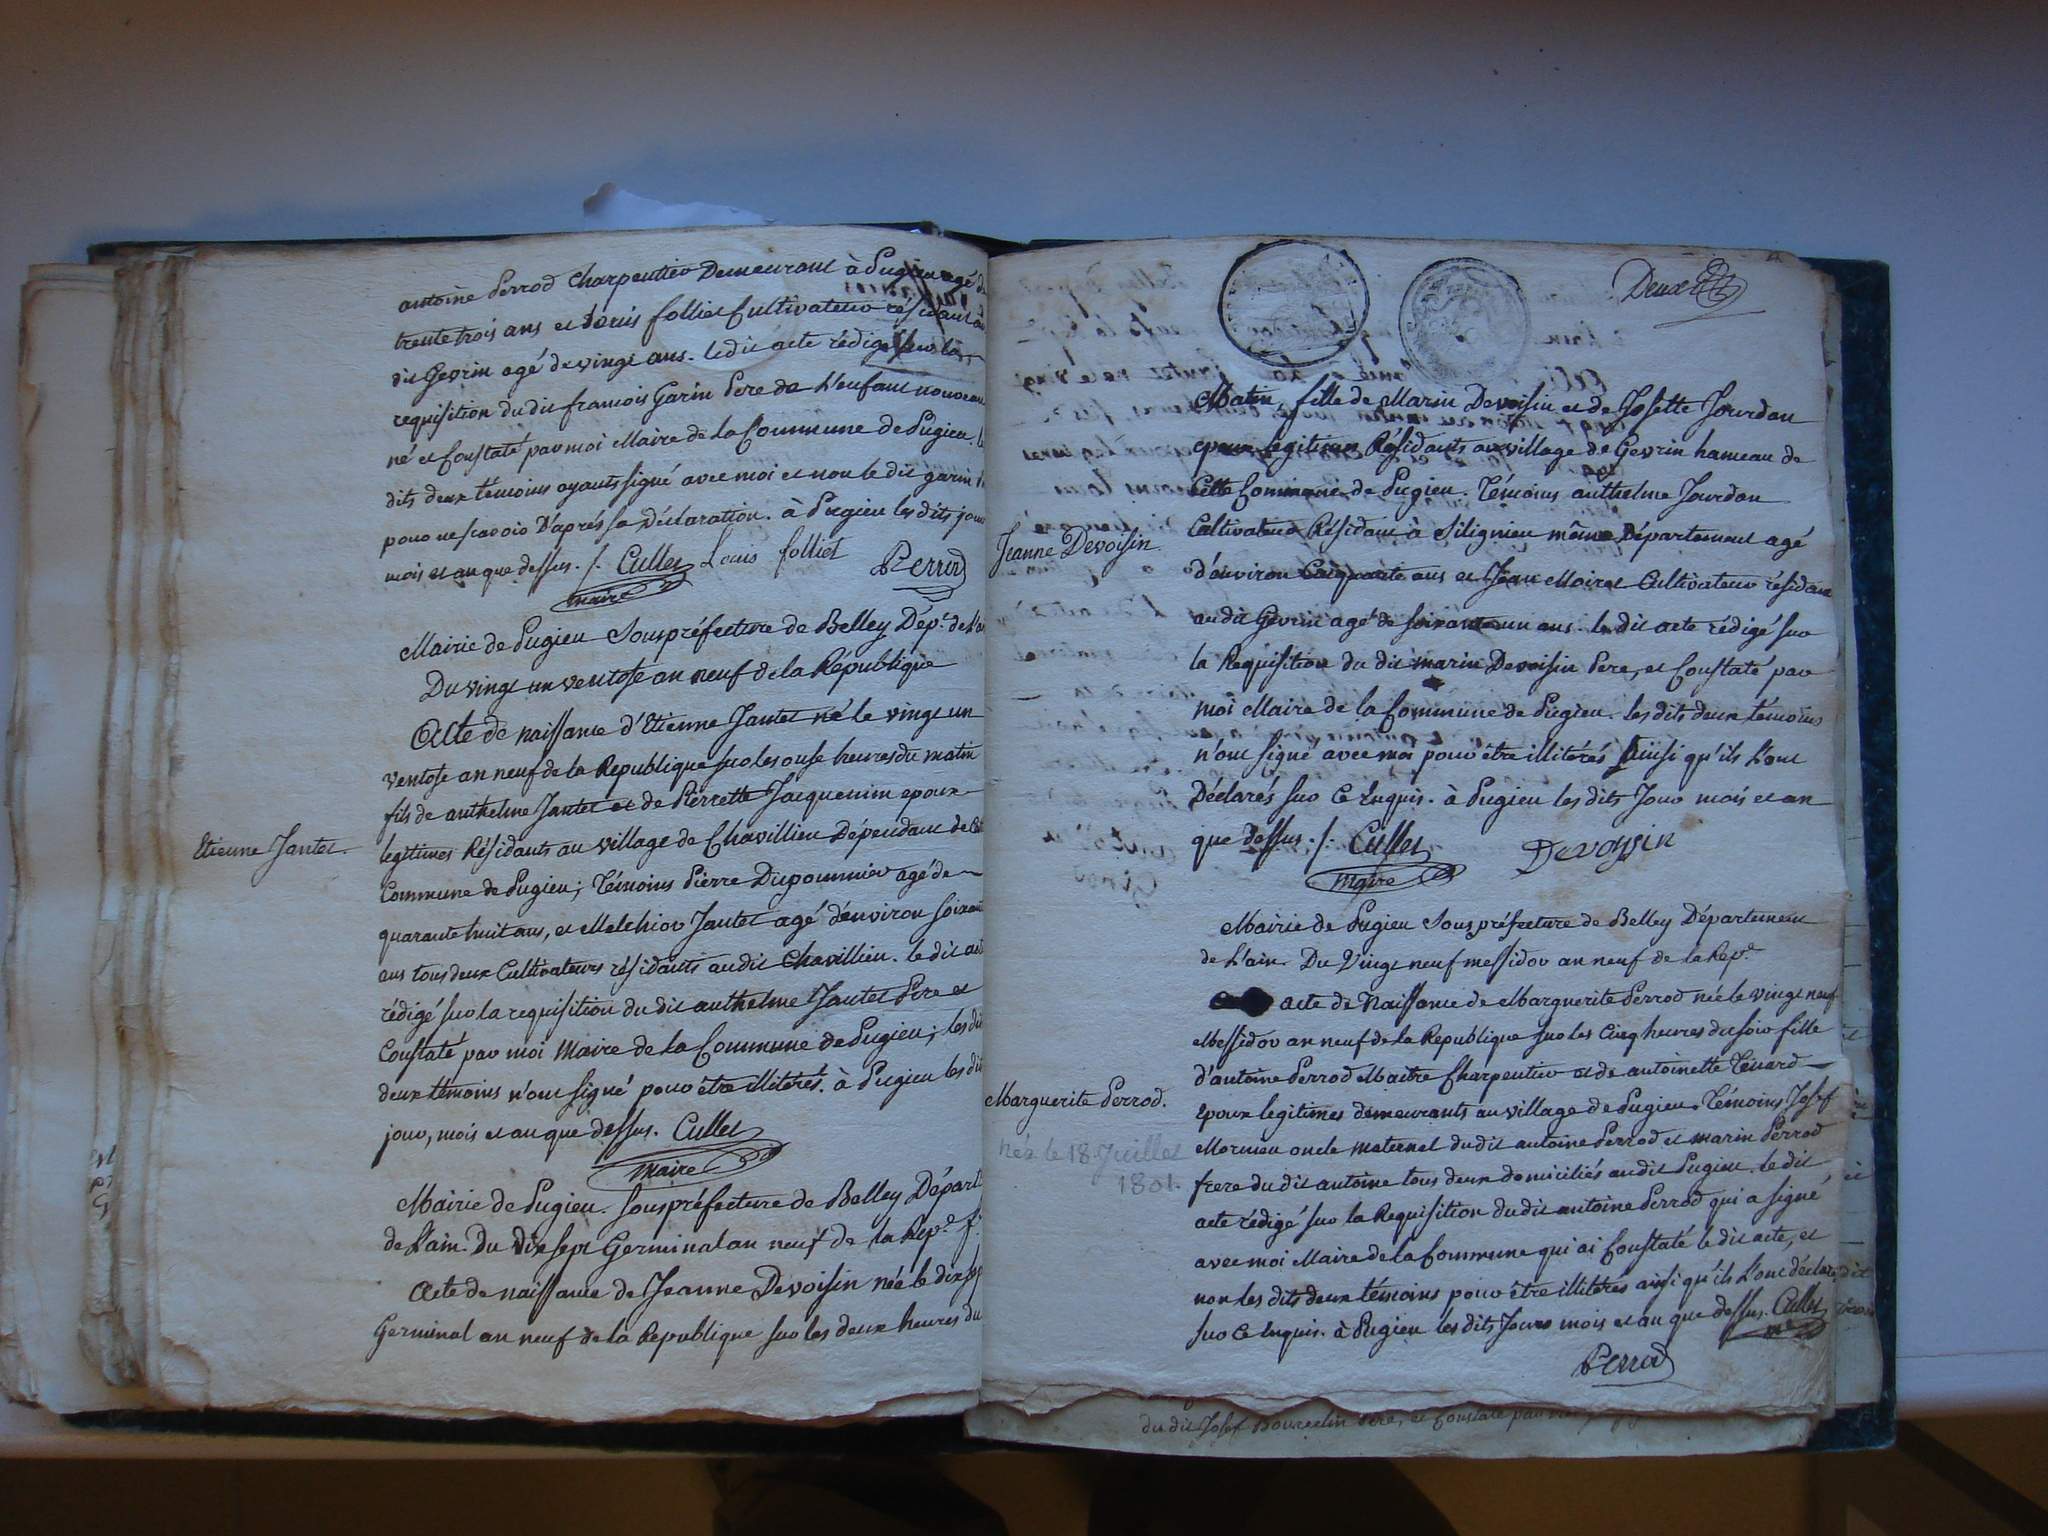 antoine Perrod Charpentier Demeurant à Pugieu agé de
trente trois ans et Louis folliet Cultivateur résidant au
dit Gevrin agé de vingt ans. le dit acte rédigé sur la
requisition du dit francois Garin Pere de L'enfant nouveau
né et Constaté par moi Maire de la Commune de Pugieu. les
dits deux témoins ayants signé avec moi et non le dit garin
pour ne scavoir D'aprés sa Déclaration. à Pugieu les dits jour
mois et an que dessus. /. Cullet Louis folliet Perrod
maire
Mairie de Pugieu Souspréfecture de Belley Dép.t de L'ain
Du vingt un ventose an neuf de la République
Acte de naissance d'Etienne Jantet né le vingt un
ventose an neuf de la Republique sur les onse heures du matin
fils de anthelme Jantet et de Pierrette Jacquenim epoux
Etienne Jantet.
legitimes Résidants au village de Chavillieu Dépendant de Cette
Commune de Pugieu; Témoins Pierre Dupommier agé de
quarante huit ans, et Melchior Jantet agé d'environ soixante
ans tous deux Cultivateurs résidants au dit Chavillieu. le dit acte
rédigé sur la requisition du dit anthelme Jantet Pere et
Constaté par moi Maire de la Commune de Pugieu; les dits
deux témoins n'ont signé pour être illiterés. à Pugieu les dits
jour, mois et an que dessus. Cullet
maire
Mairie de Pugieu. souspréfecture de Belley Départ
de L'ain. Du Dix sept Germinal an neuf de la Rep.e f.
Acte de naissance de Jeanne Devoisin née le dix sept
Germinal an neuf de la Republique sur les deux heures du
Deux
Matin, fille de Marin Devoisin et de Josette Jourdan
epoux legitimes Résidants au village de Gevrin hameau de
Cette Commune de Pugieu. Témoins anthelme Jourdan
Jeanne Devoisin
Cultivateur Résidant à Silignieu même Département agé
d'environ Cinquante ans et Jean Moiret Cultivateur résidant
au dit Gevrin agé de soixante un ans. le dit acte rédigé sur
la Requisition du dit marin Devoisin Pere, et Constaté par
moi Maire de la Commune de Pugieu. les dits deux témoins
n'ont signé avec moi pour être illitérés Ainsi qu'ils L'ont
Déclarés sur Ce Enquis. à Pugieu les dits Jour mois et an
que dessus. /. Cullet Devoysin
maire
Mairie de Pugieu Souspréfecture de Belley Département
de L'ain. Du Vingt neuf messidor an neuf de la Rep.e
acte de Naissance de Marguerite Perrod née le vingt neuf
Messidor an neuf de la Republique sur les Cinq heures du soir fille
d'antoine Perrod Maitre Charpentier et de antoinette Tenard
Marguerite Perrod.
née le 18 Juillet
1801.
epoux legitimes demeurants au village de Pugieu. Témoins Josef
Mermieu oncle maternel du dit antoine Perrod et marin Perrod
frere du dit antoine tous deux domiciliés au dit Pugieu. le dit
acte rédigé sur la Requisition du dit antoine Perrod qui a signé
avec moi Maire de la Commune qui ai Constaté le dit acte, et
non les dits deux témoins pour être illiteres ainsi qu'ils L'ont déclaré
sur Ce Enquis. à Pugieu les dits Jours mois et an que dessus. Cullet
m.re
Perrod
du dit Josef Bourcelin Pere, et Constaté par